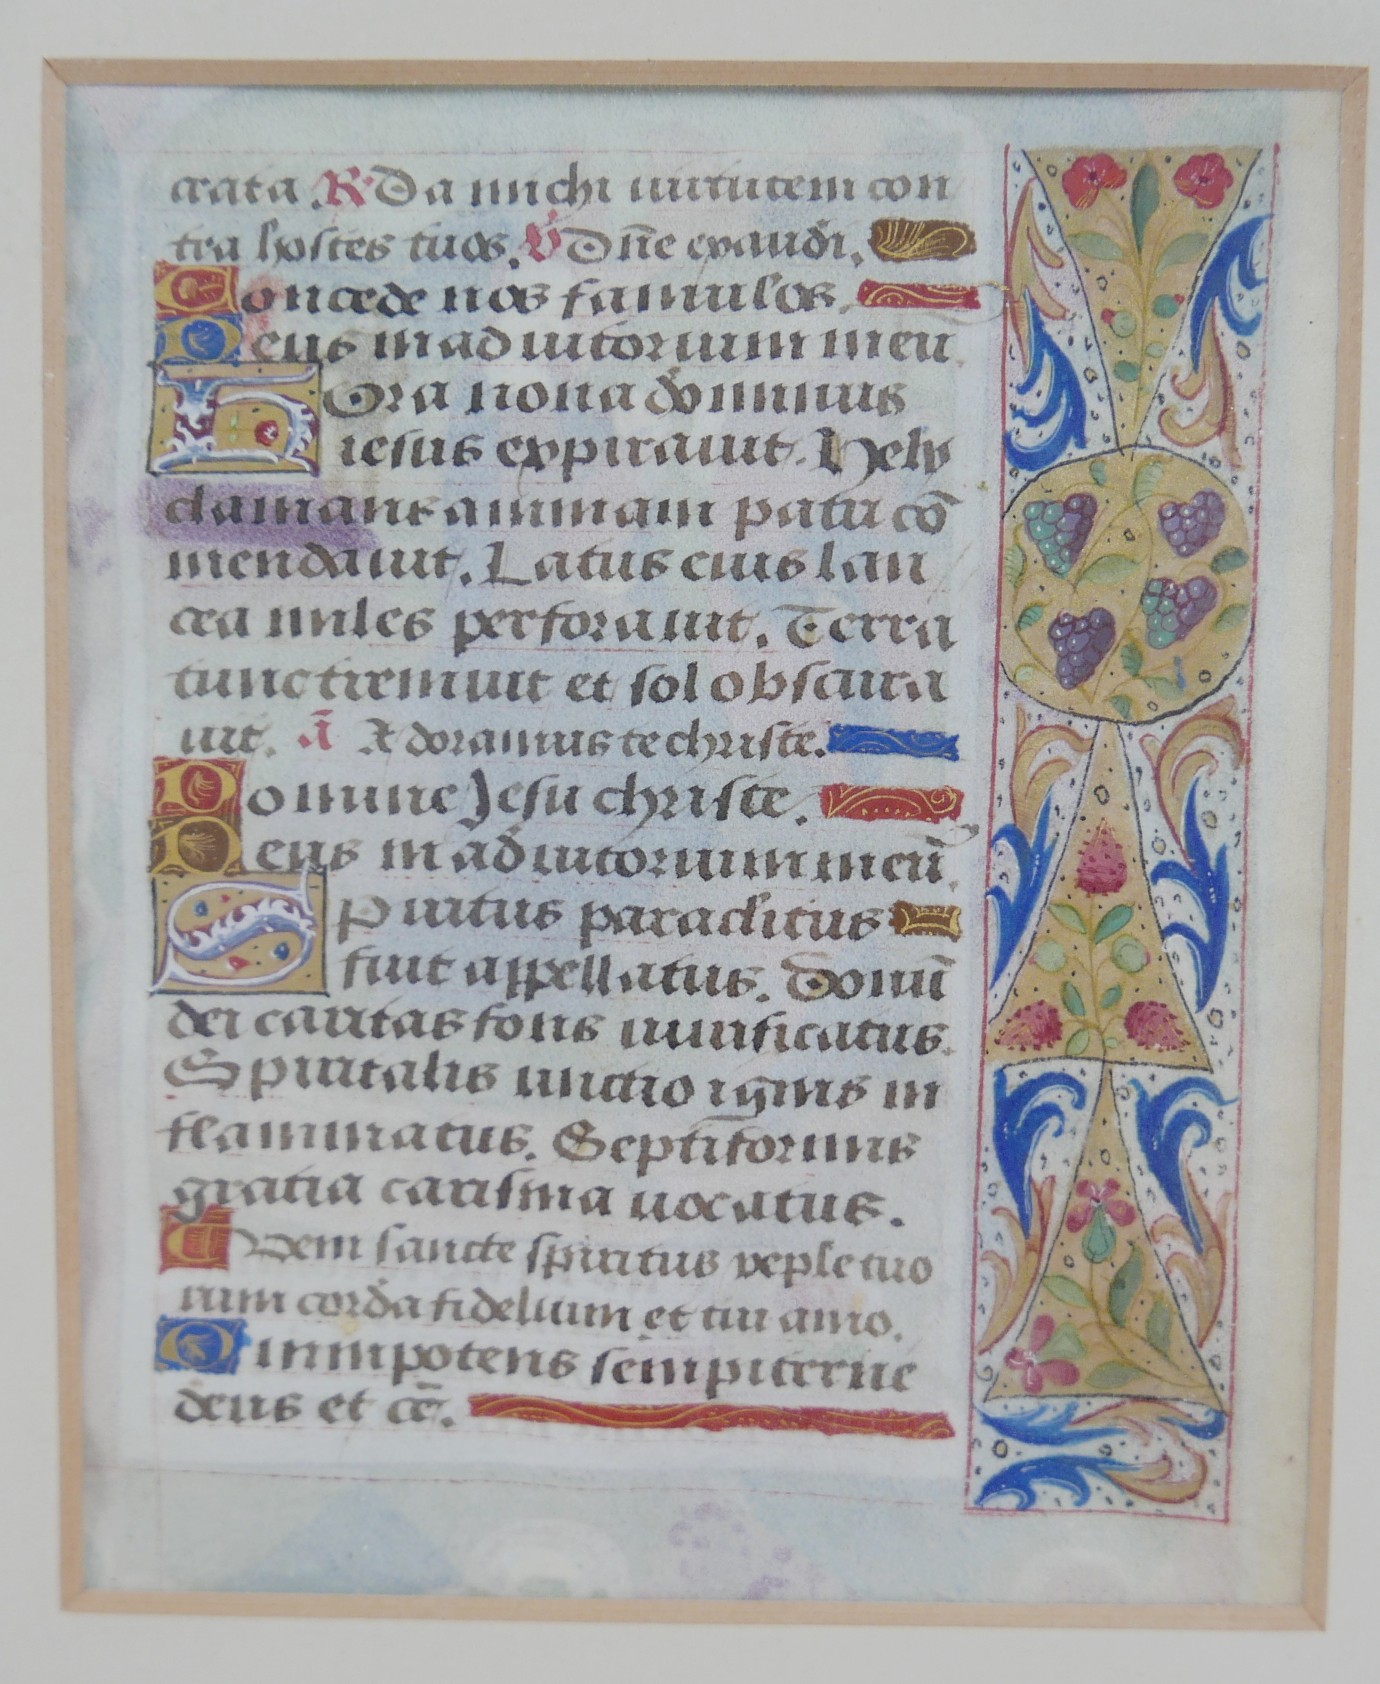 crata. R Da michi virtutem con
tra hostes tuos. V Dñe exaudi.
Concede nos famulos.
Deus in adiutorium meu
Hora nona dominus
iesus expirauit. Hely
clamans animam patri cō
mendauit. Latus eius lan
cea miles perforauit. Terra
tunc tremuit et sol obscura
uit. Ā Adoramus te christe.
Domine Jesu christe.
Deus in adiutorium meū.
Spiritus paraclitus
fuit appellatus. Donū
dei caritas fons uiuificatus.
Spiritalis unctio ignis in
flammatus. Septiformis
gratia carisma uocatus.
Veni sancte spiritus reple tuo
rum corda fidelium et tui amo.
Omnipotens sempiterne
deus et cē.